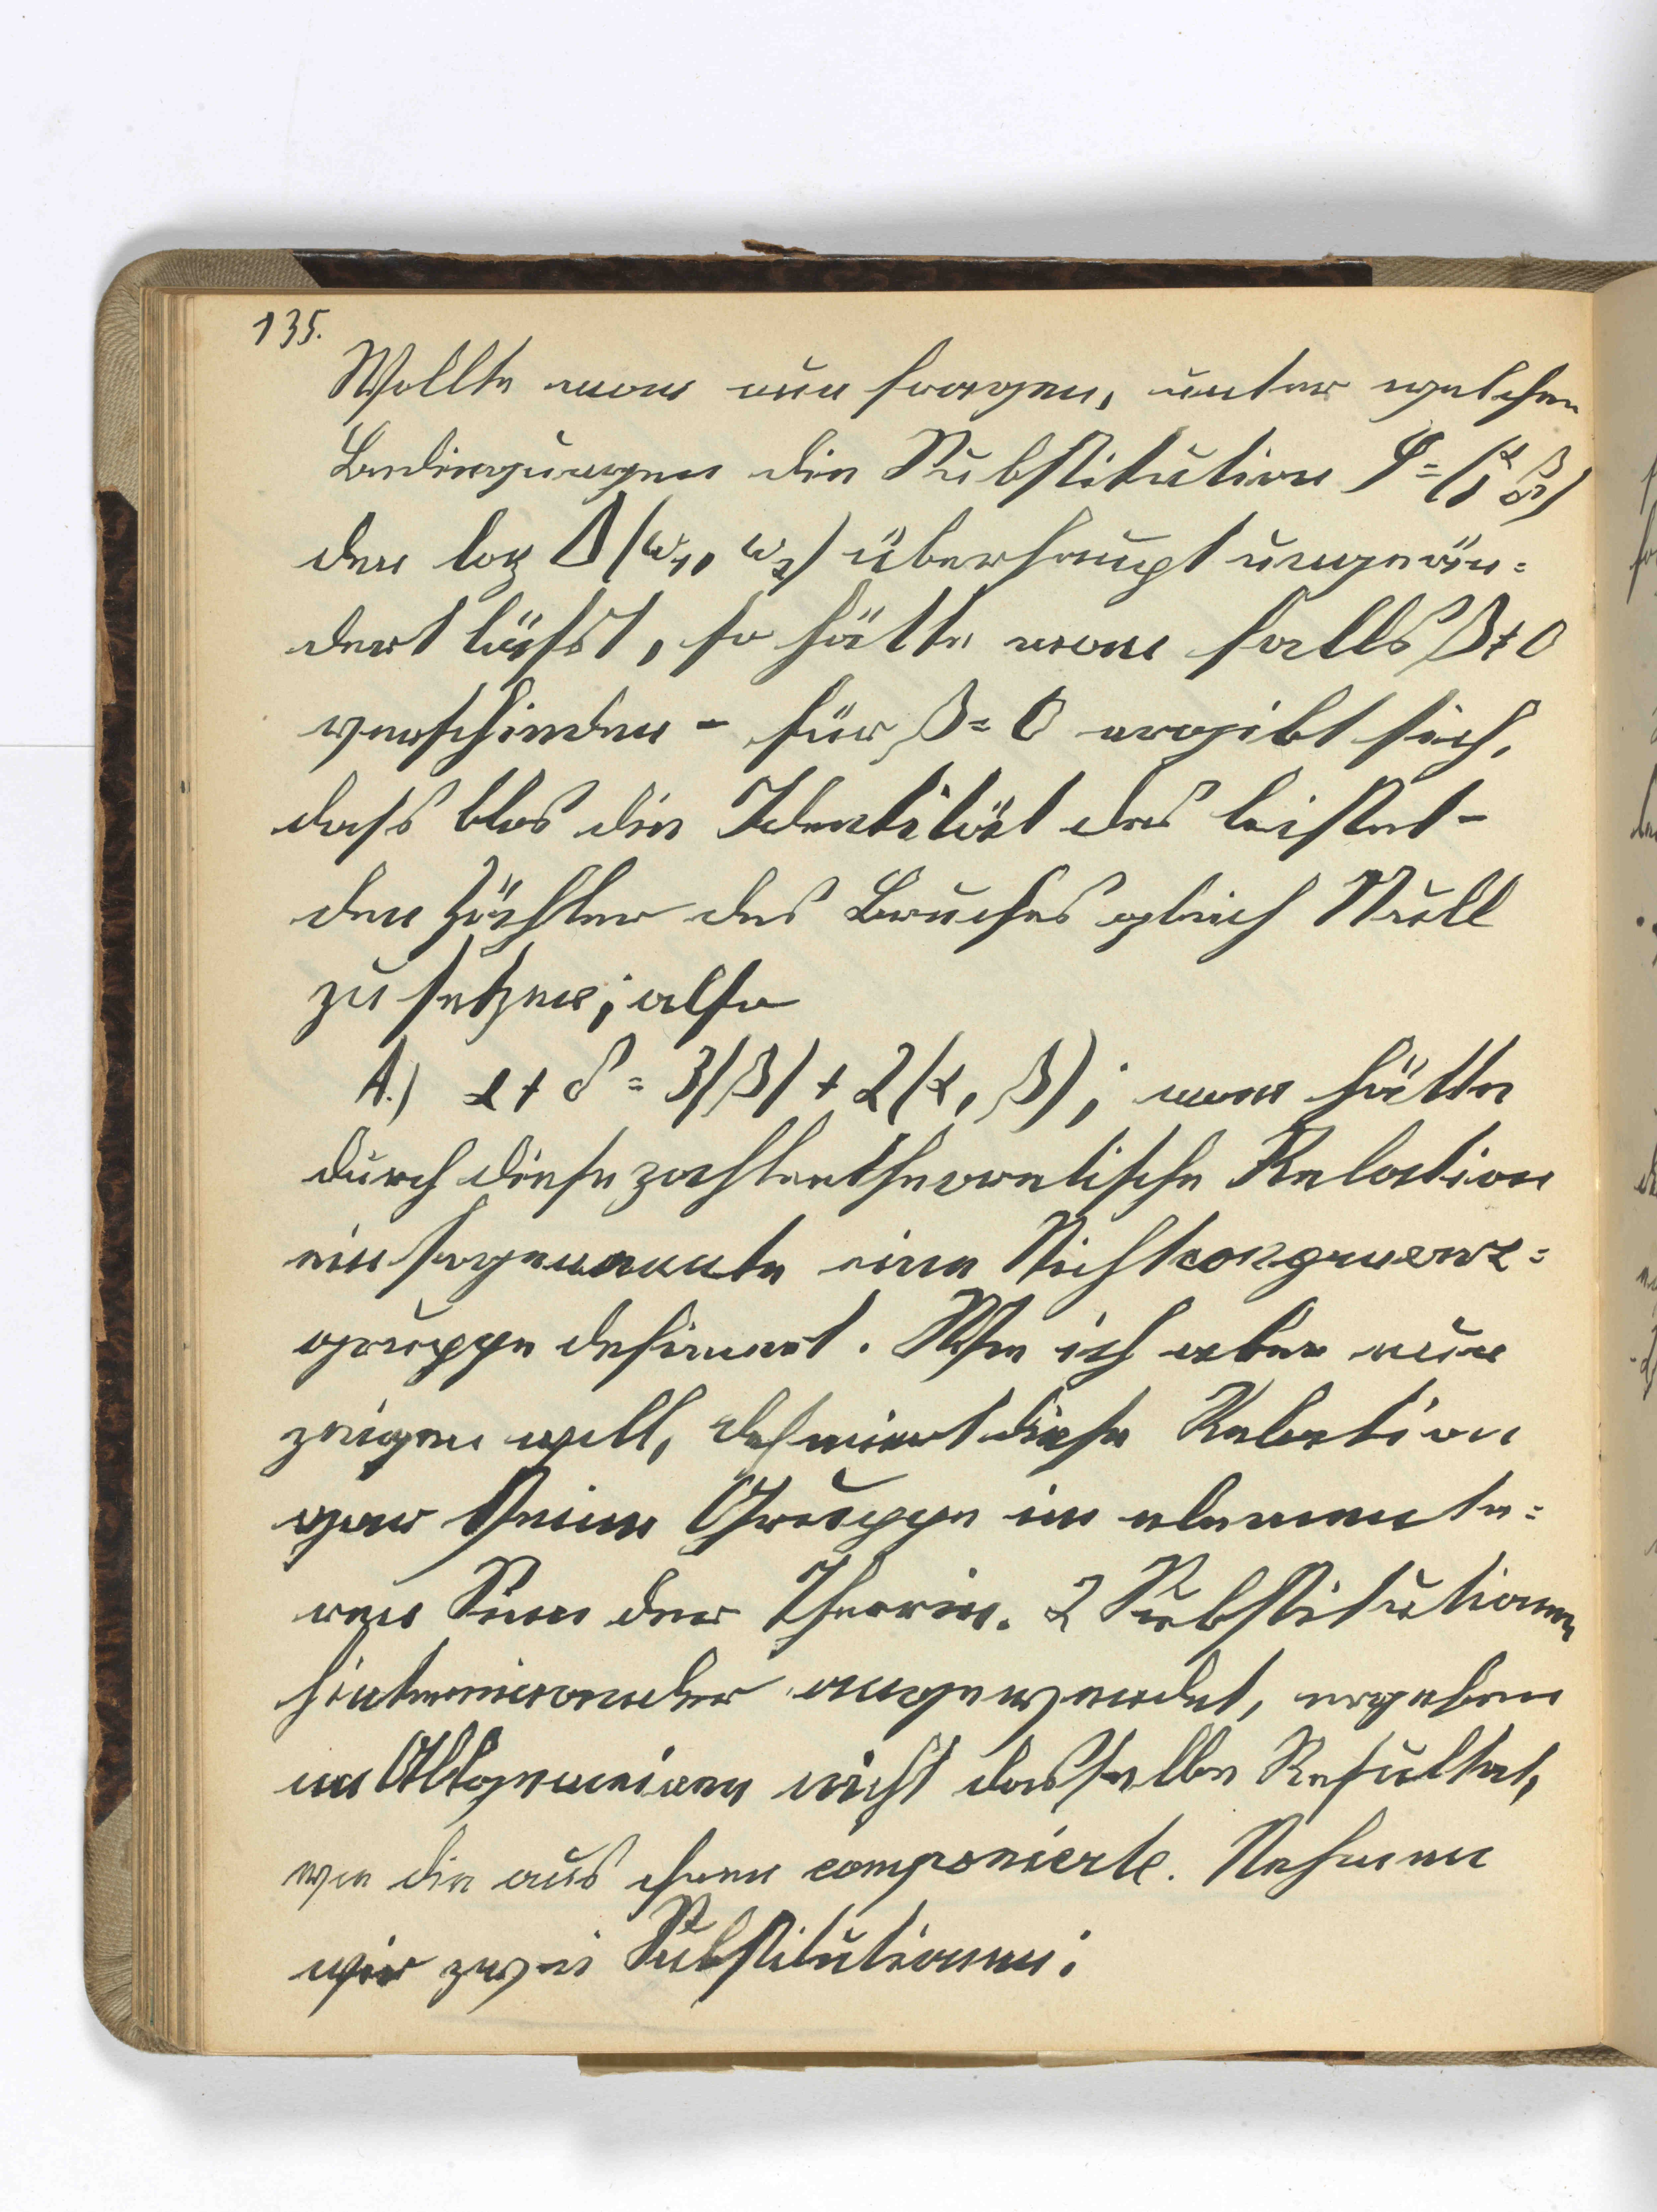 135.
Wollte man nun fragen, unter welchen
Bedingungen die Substitution S = (α β γ δ)
den log Δ(ω₁, ω₂) überhaupt ungeän=
dert läßst, so hätte man falls β ≠ 0
verschieden - für β = 0 ergibt sich,
dass blos die Identität das leistet -
den Zähler des Bruches gleich Null
zu setzen; also
A.) α + δ = 3(β) + 2(α, β); man hätte
durch diese zahlentheoretische Relation
ein sogenannte eine Nichtkongruenz=
gruppe definiert. Wie ich aber nun
zeigen will, definiert diese Relation
gar keine Gruppe im elementa=
ren Sinn der Theorie. 2 Substitutionen
hintereinander angewendet, ergeben
im Allgemeinen nicht dasselbe Resultat,
wie die aus ihnen componierte. Nehmen
wir zwei Substitutionen: